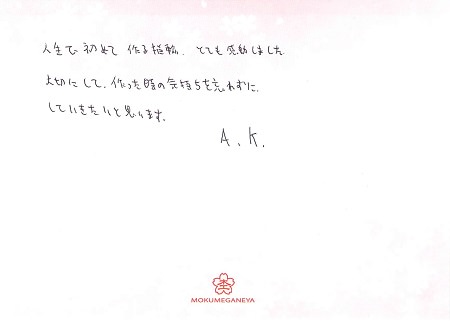 人生で初めて作る指輪、とても感動しました
大切にして、作った時の気持ちを忘れずに、
していきたいと思います。
A.K.
MOKUMEGANEYA